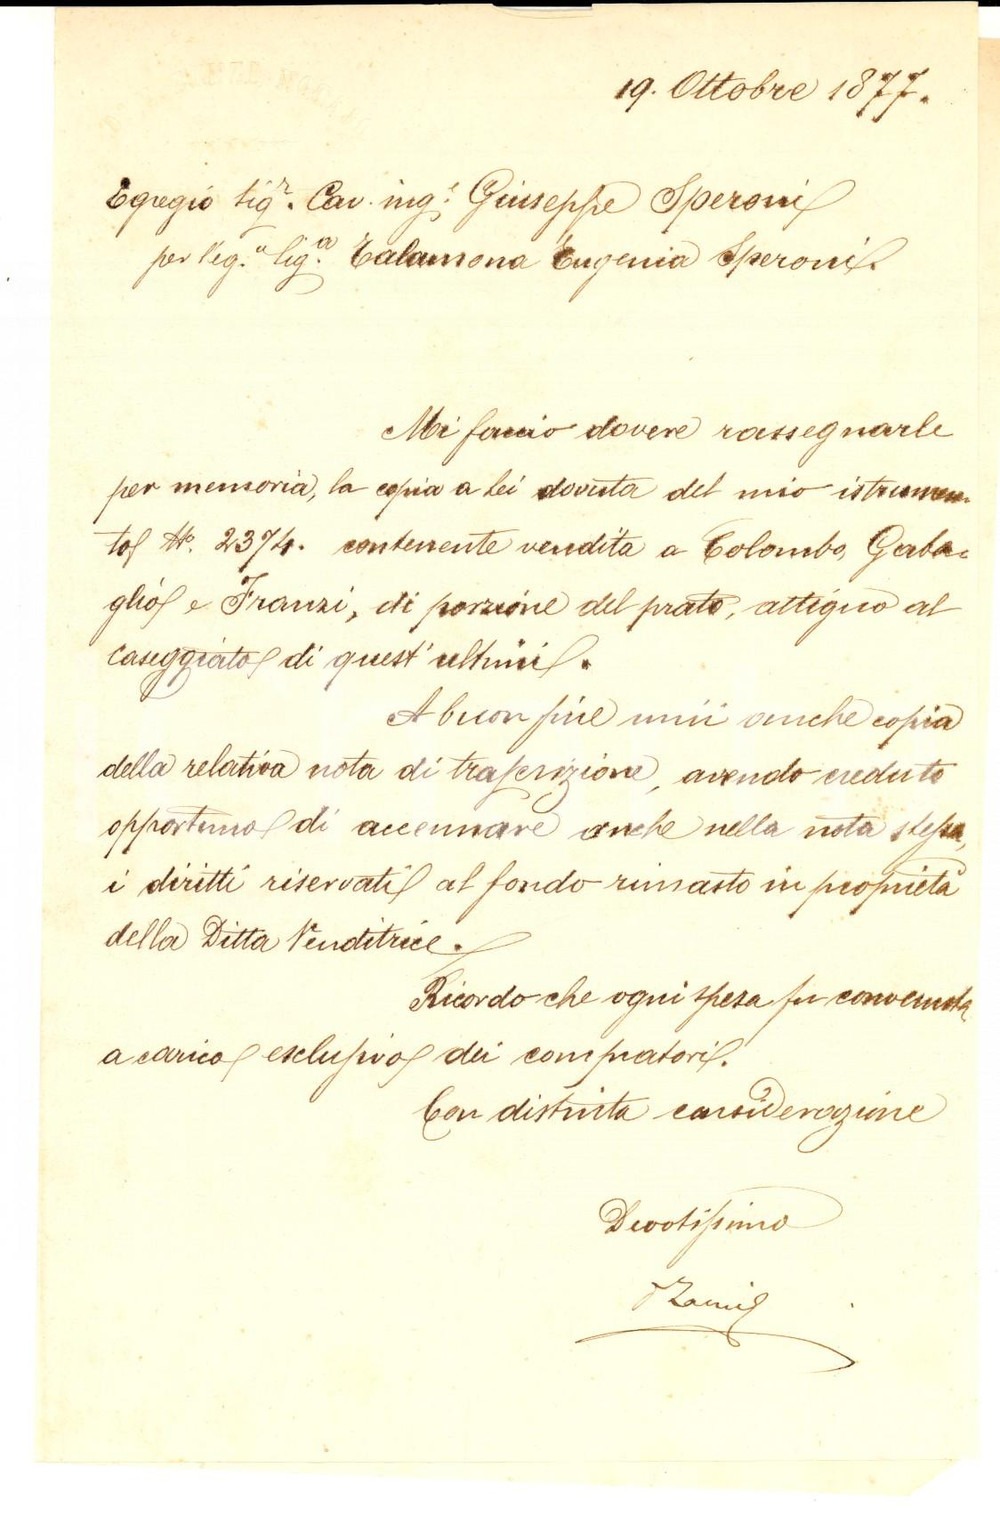 19. Ottobre 1877.
Egregio Sigr. Cav. ingе. Giuseppe Speroni
per l'eg.a Sig.a Talamona Eugenia Speroni.
Mi faccio dovere rassegnarle
per memoria, la copia a Lei dovuta del mio istrumen-
to N.o 2374. contenente vendita a Colombo, Gerba-
glio e Franzi, di porzione del prato, attiguo al
caseggiato di quest'ultimi.
A buon fine unii anche copia
della relativa nota di trascrizione, avendo creduto
opportuno di accennare anche nella nota stessa,
i diritti riservati al fondo rimasto in proprietà
della Ditta Venditrice.
Ricordo che ogni spesa fu convenuta
a carico esclusivo dei compratori.
Con distinta considerazione
Devotissimo